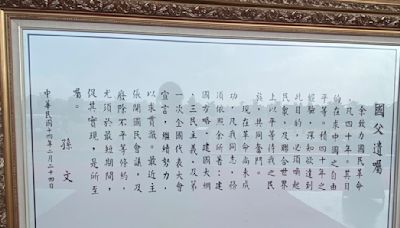 國父遺囑
余致力國民革命
凡四十年。其目
的在求中國之自由
平等。積四十年之
經驗,深知欲達到
此目的,必須喚起
民眾,及聯合世界
上以平等待我之民
族,共同奮鬥。
現在革命尚未成
功,凡我同志,務
須依照余所著:建
國方略、建國大綱
、三民主義,及第
一次全國代表大會
宣言,繼續努力,
以求貫徹。最近主
張開國民會議,及
廢除不平等條約,
尤須於最短期間,
促其實現,是所至
囑。
孫文
中華民國十四年二月二十四日